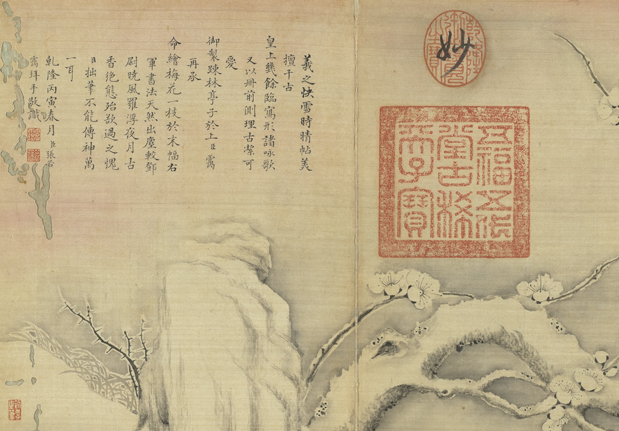 妙
五福五代
堂古稀
天子寶
羲之快雪時晴帖美
擅千古
皇上幾餘臨寫形諸詠歌
又以冊前側理古潔可
愛
御製疎林亭子於上臣需
再承
命繪梅花一枝於末幅右
軍書法天然出塵較鄒
尉曉風羅浮夜月古
香絶態殆欲過之愧
臣拙筆不能傳神萬
一耳
乾隆丙寅春月臣張若
靄拜手敬識